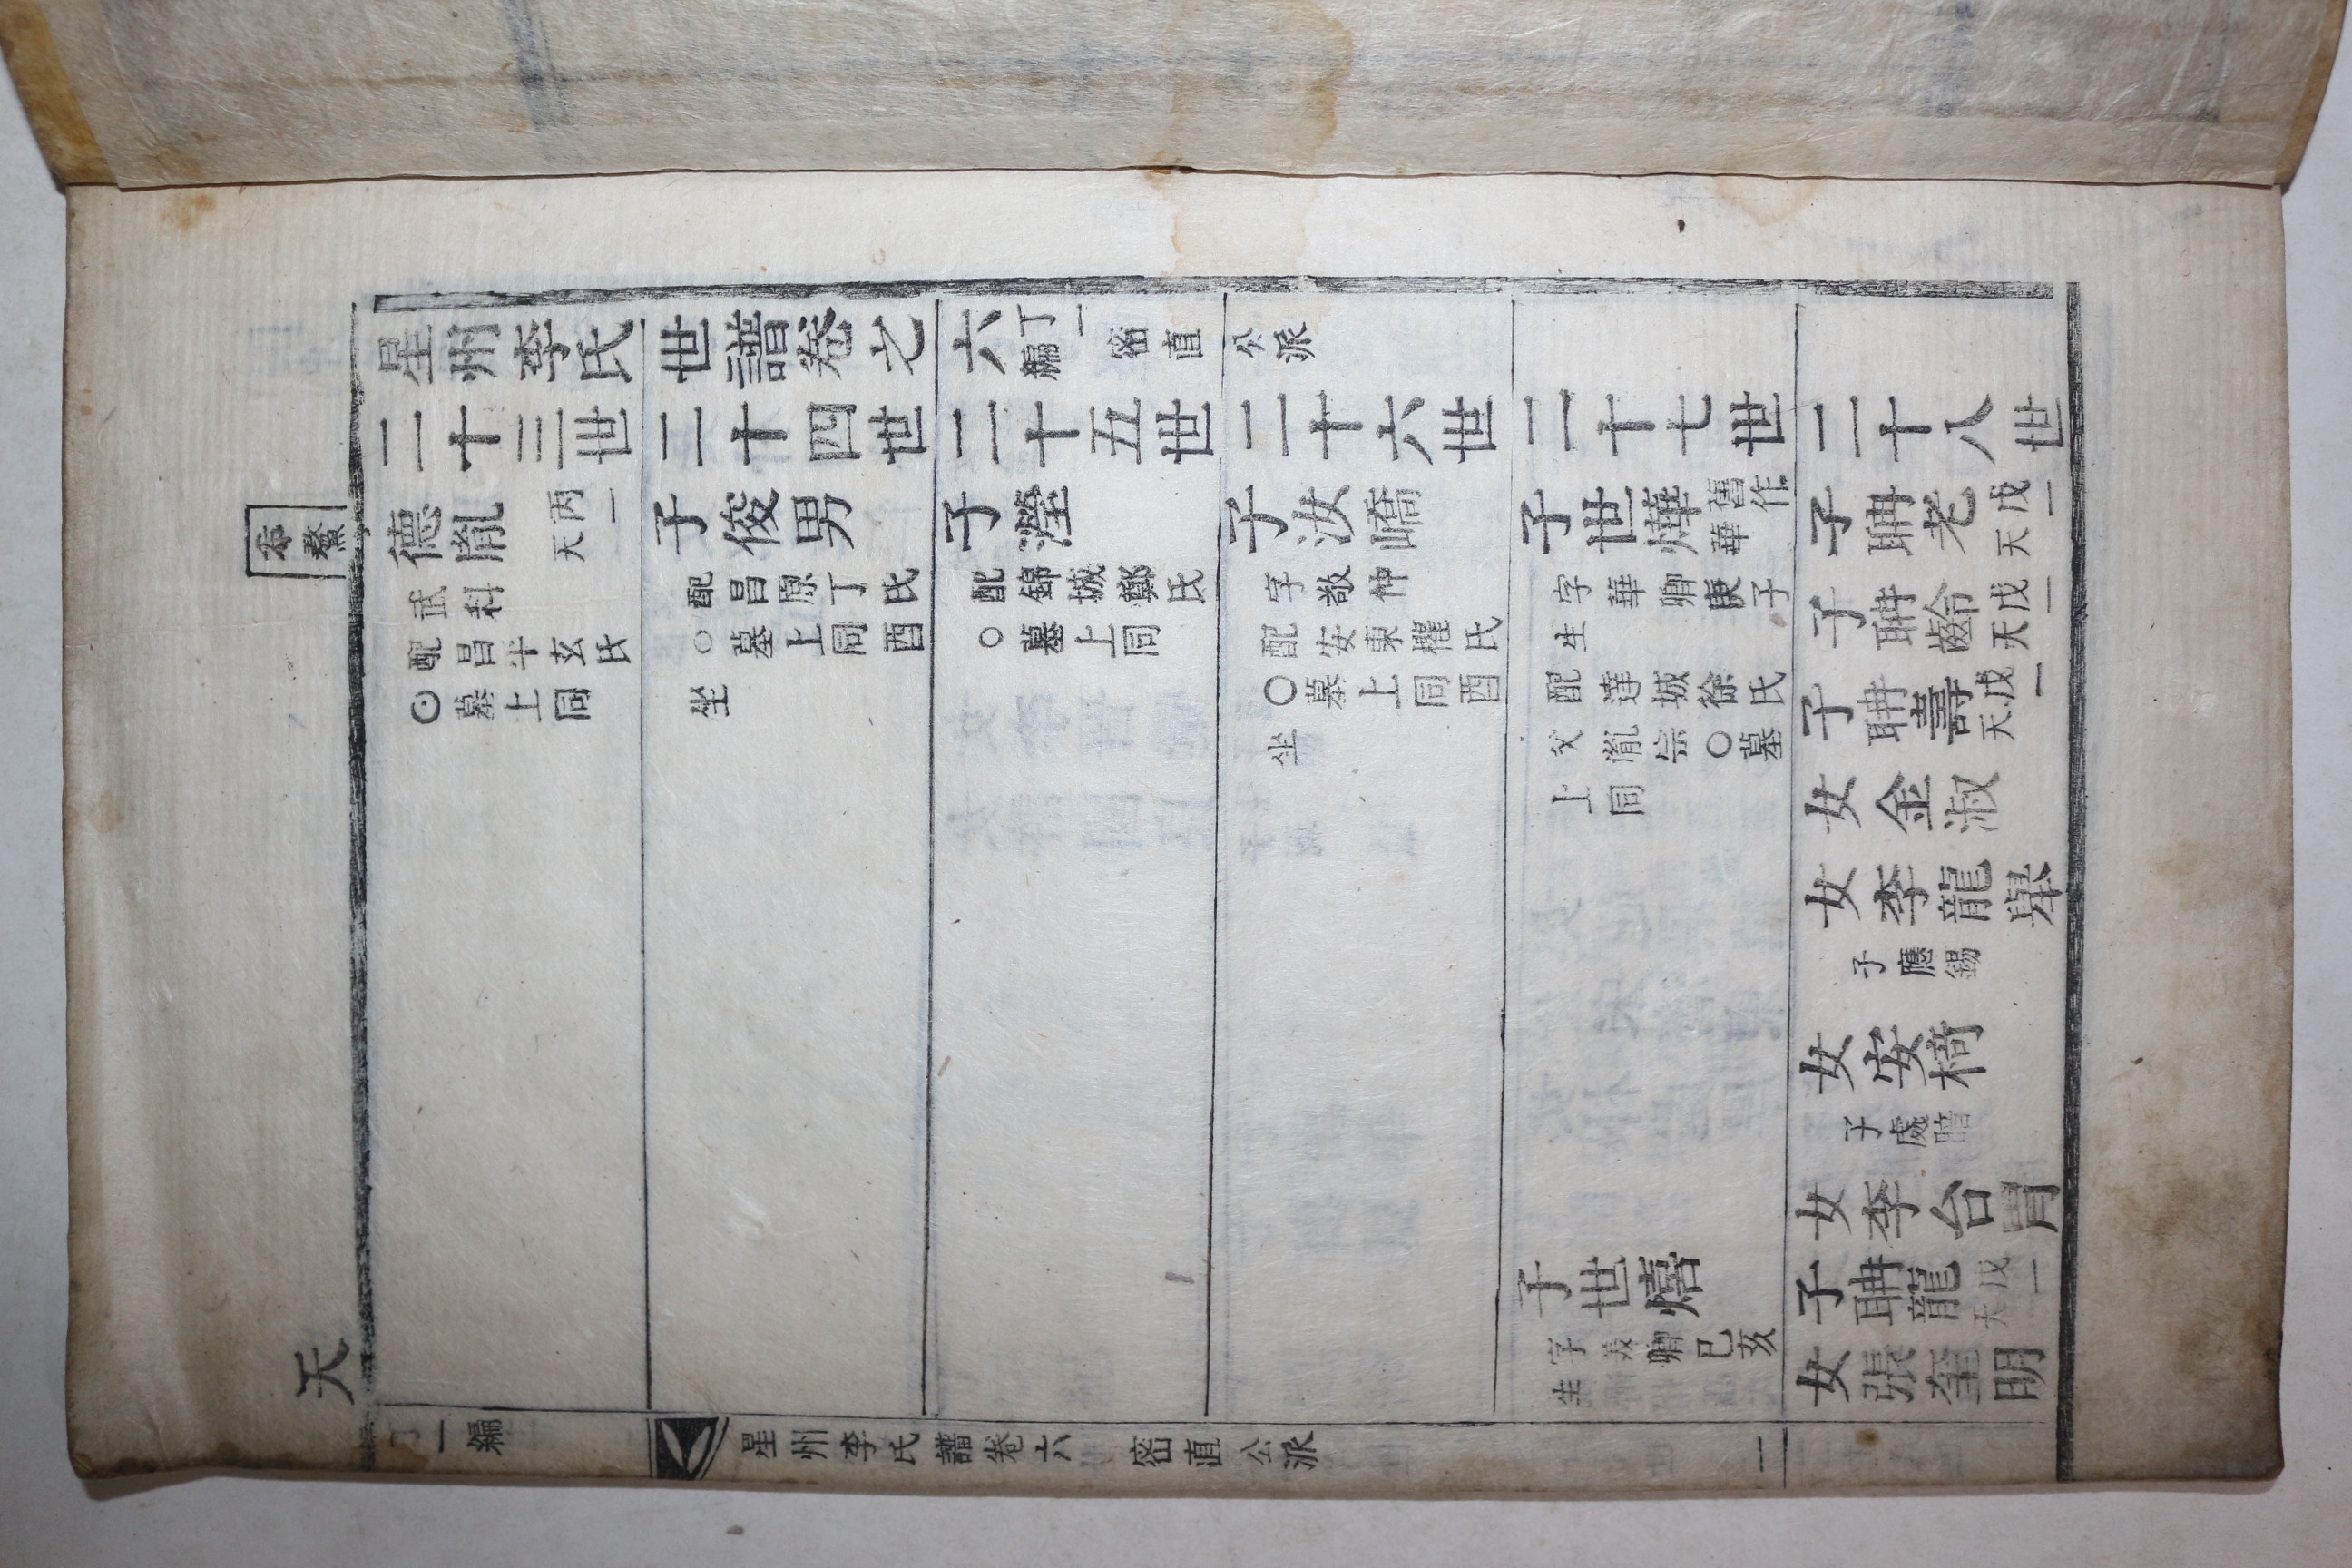 星州李氏世譜卷之六 丁一編 密直公派
二十三世
二十四世
二十五世
二十六世
二十七世
二十八世
德胤 丙一天
武科
配昌平玄氏
○墓上同
子俊男
配昌原丁氏
○墓上同酉
坐
子瀅
配錦城鄭氏
○墓上同
子汝嶠
字敬仲
配安東權氏
○墓上同酉
坐
子世燁 舊作華
字華卿庚子
生
配達城徐氏
父胤宗○墓
上同
子世熺
卿己亥
生
子聃老 戊一天
子聃齡 戊一天
子聃壽 戊一天
女金淑
女李龍擧
子應錫
女安椅
子處
女李台胃
子聃龍 戊一天
女張奎明
天
丁一編
星州李氏譜卷六 密直公派 一